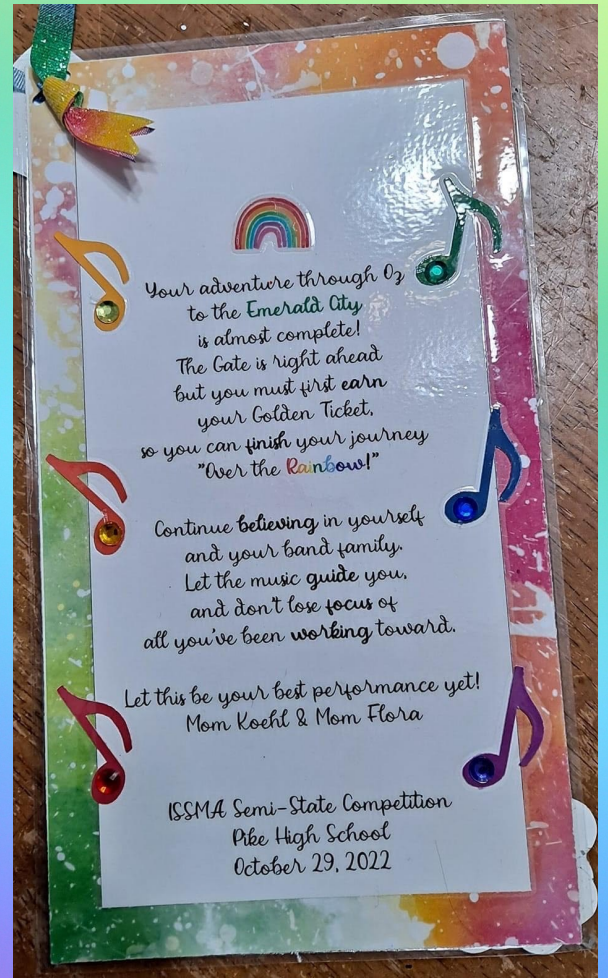 Your adventure through Oz
to the Emerald City
is almost complete!
The Gate is right ahead
but you must first earn
your Golden Ticket,
so you can finish your journey
"Over the Rainbow!"
Continue believing in yourself
and your band family.
Let the music guide you,
and don't lose focus of
all you've been working toward.
Let this be your best performance yet!
Mom Koehl & Mom Flora
ISSMA Semi-State Competition
Pike High School
October 29, 2022